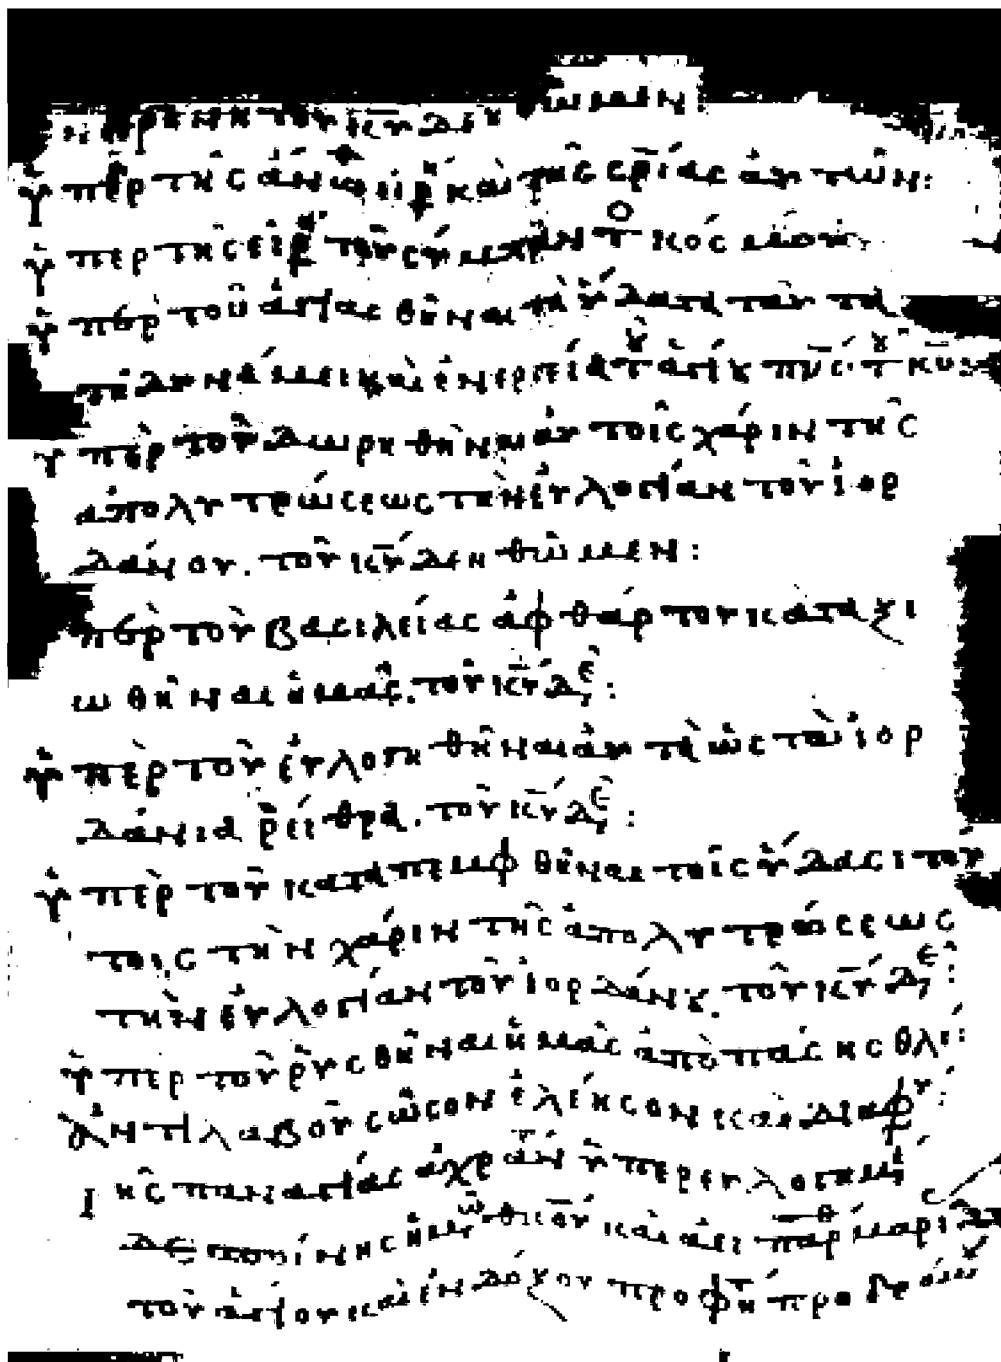 εἰρήνη τοῦ κυ δεηθῶμεν:
ὑπὲρ τῆς ἄνωθεν εἰρ καὶ τῆς σρίας αὐτῶν:
ὑπὲρ τῆς εἰρ τοῦ σύμπαντος κόσμου
ὑπὲρ τοῦ ἁγιασθῆναι τὰ ὕδατα ταῦτα
τῇ δυνάμει καὶ ἐνεργείᾳ τοῦ ἁγίου πνς. τοῦ κυ
ὑπὲρ τοῦ δωρηθῆναι αὐτοῖς χάριν τῆς
ἀπολυτρώσεως τὴν εὐλογίαν τοῦ ἰορ
δάνου. τοῦ κυ δεηθῶμεν:
ὑπὲρ τοῦ βασιλείας ἀφθάρτου καταξι
ωθῆναι ἡμᾶς. τοῦ κυ δε:
ὑπὲρ τοῦ εὐλογηθῆναι αὐτὰ ὡς τὰ ἰορ
δάνια ῥεῖθρα. τοῦ κυ δε:
ὑπὲρ τοῦ καταπεμφθῆναι τοῖς ὕδασι τού
τοις τὴν χάριν τῆς ἀπολυτρώσεως
τὴν εὐλογίαν τοῦ ἰορδάνου. τοῦ κυ δε:
ὑπὲρ τοῦ ῥυσθῆναι ἡμᾶς ἀπὸ πάσης θλί:
ἀντιλαβοῦ σῶσον ἐλέησον καὶ διαφυ:
τῆς παναγίας ἀχράν ὑπερευλογημ
δεσποίνης ἡμῶν θκου καὶ ἀειπαρθ μαρίας
τοῦ ἁγίου καὶ ἐνδόξου προφή προδρόμου